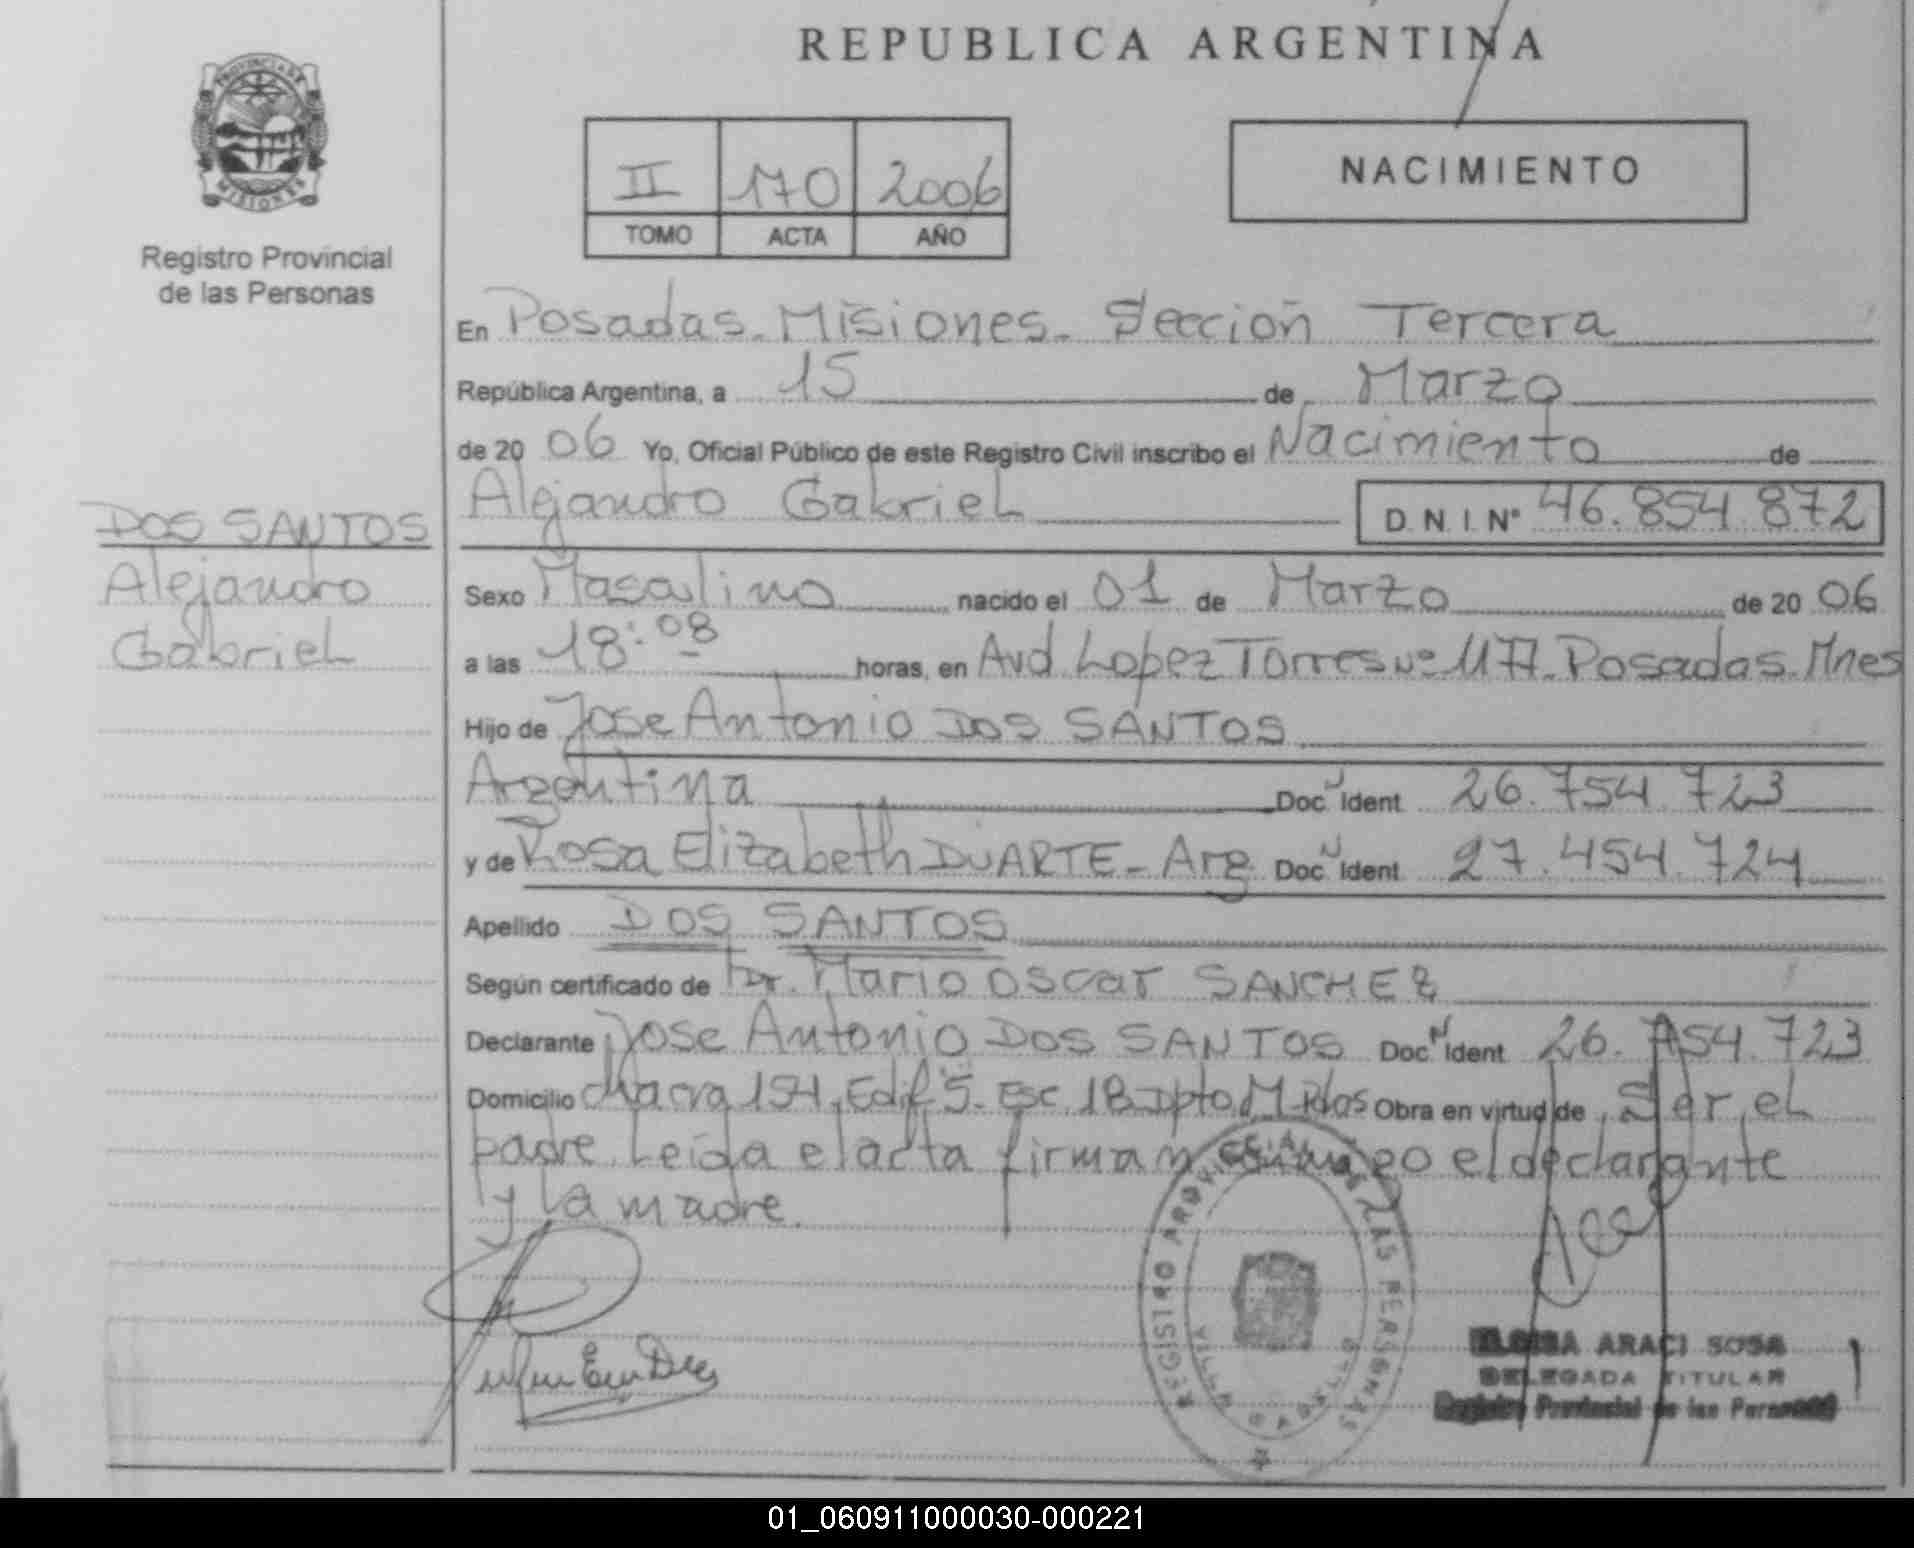 REPUBLICA ARGENTINA
PROVINCIA DE
MISIONES
Registro Provincial
de las Personas
II 170 2006
TOMO ACTA AÑO
NACIMIENTO
En Posadas-Misiones- Sección Tercera
República Argentina, a 15 de Marzo
de 20 06 Yo, Oficial Público de este Registro Civil inscribo el Nacimiento de
Alejandro Gabriel D.N.I. Nº 46.854.872
DOS SANTOS
Alejandro
Gabriel
Sexo Masculino nacido el 01 de Marzo de 20 06
a las 18:08 horas, en Avd. Lopez Torres Nº 1177-Posadas-Mnes
Hijo de Jose Antonio DOS SANTOS
Argentina Doc Ident 26.754.723
y de Rosa Elizabeth DUARTE-Arg. Doc Ident 27.454.724
Apellido DOS SANTOS
Según certificado de Dr. Mario Oscar SANCHEZ
Declarante Jose Antonio DOS SANTOS Doc Ident 26.754.723
Domicilio chacra Edif 5- Esc 1B Dpto Obra en virtud de Ser el
padre. Leída el acta firman el declarante
y la madre.
REGISTRO PROVINCIAL DE LAS PERSONAS
VILLA CABELLO
ARACI SOSA
DELEGADA TITULAR
Registro Provincial de las Personas
01_060911000030-000221